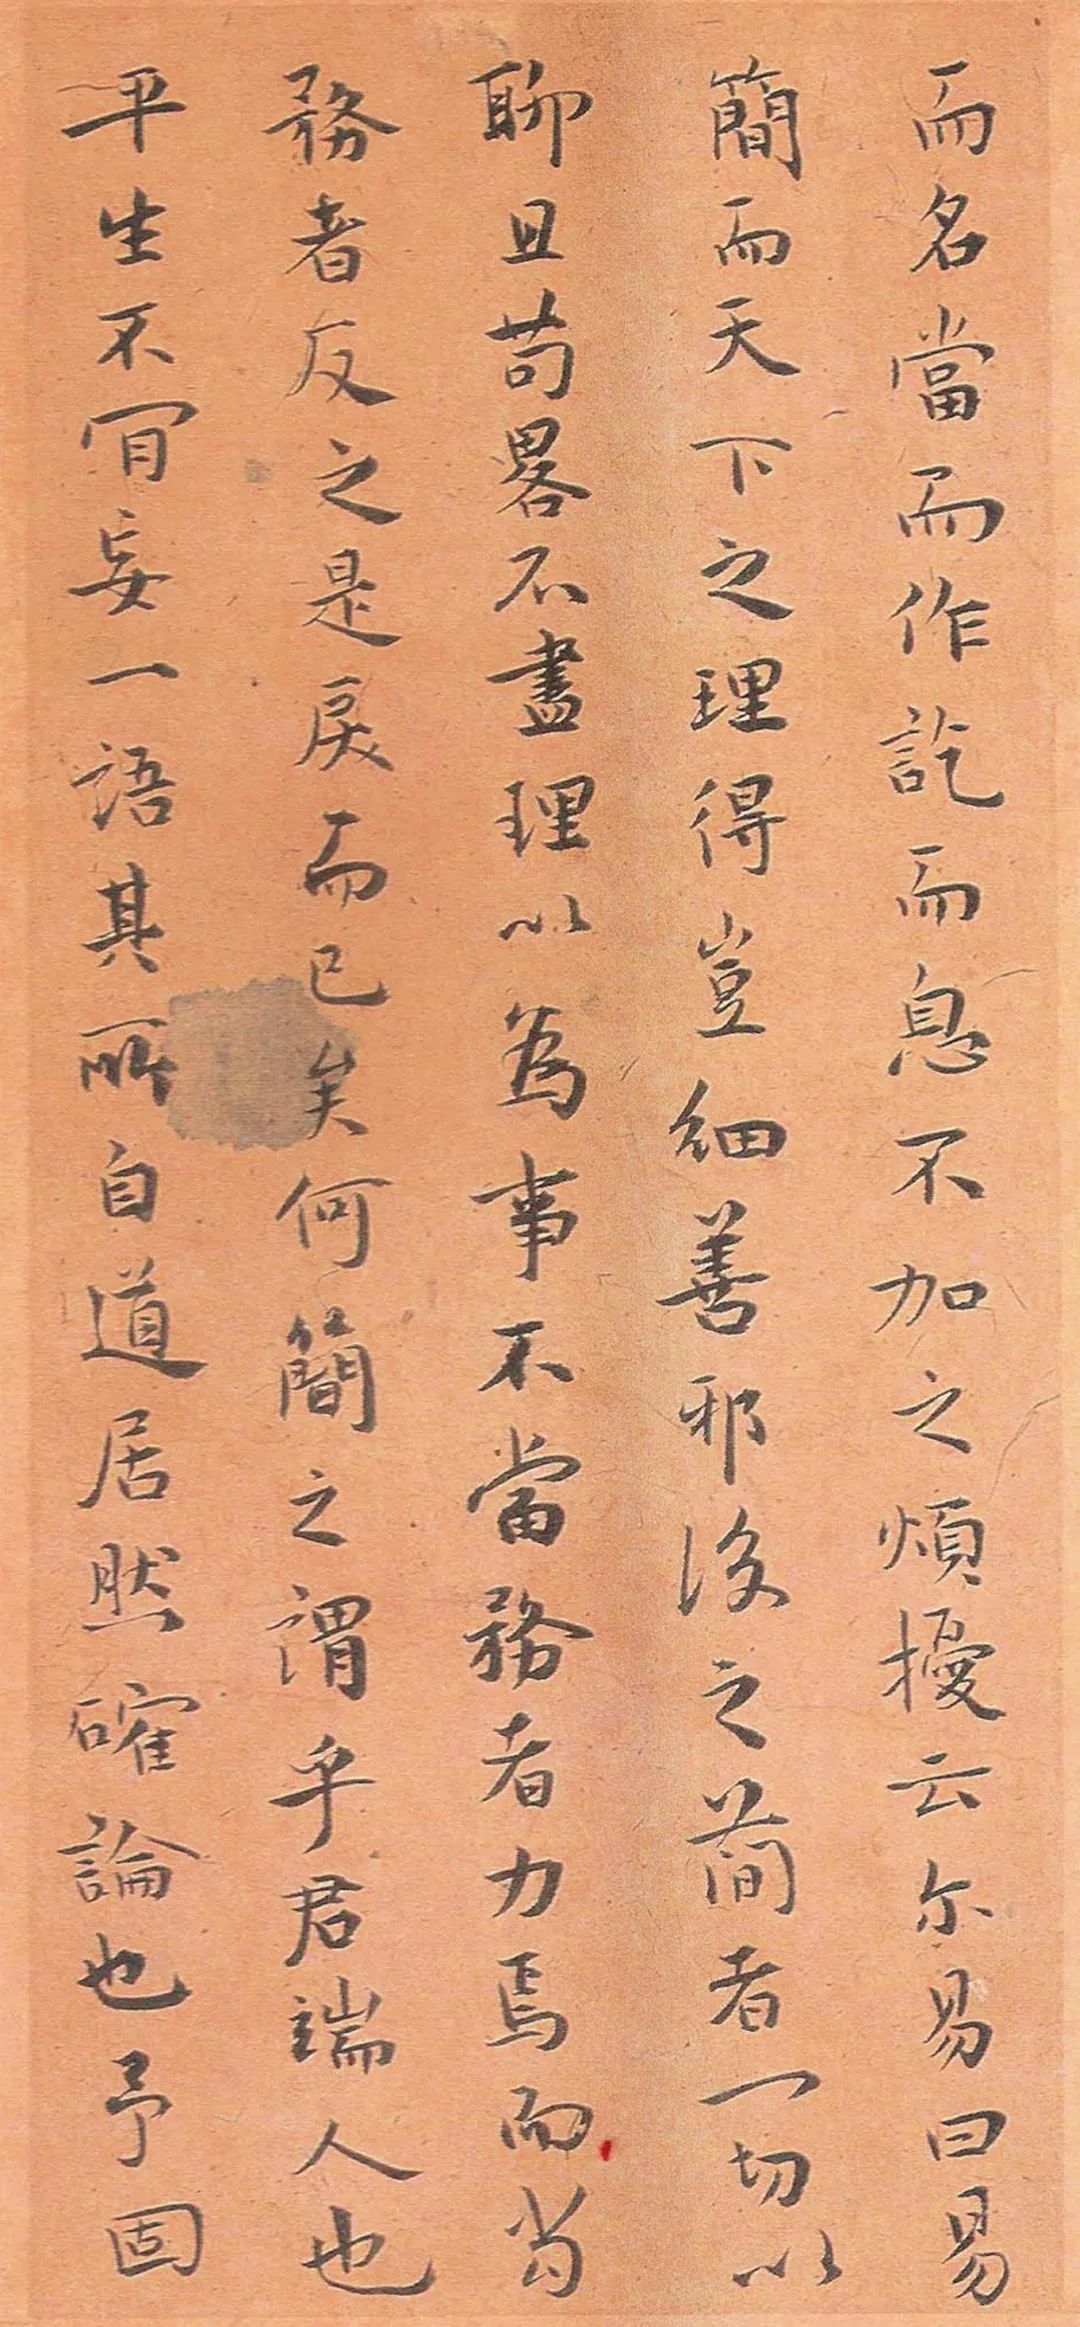 而名當而作訖而息不加之煩擾云尔易曰易
簡而天下之理得豈細善邪後之简者一切以
聊且苟畧不盡理以為事不當務者力焉而当
務者反之是戾而已矣何簡之謂乎君端人也
平生不肎妄一語其所自道居然確論也予固